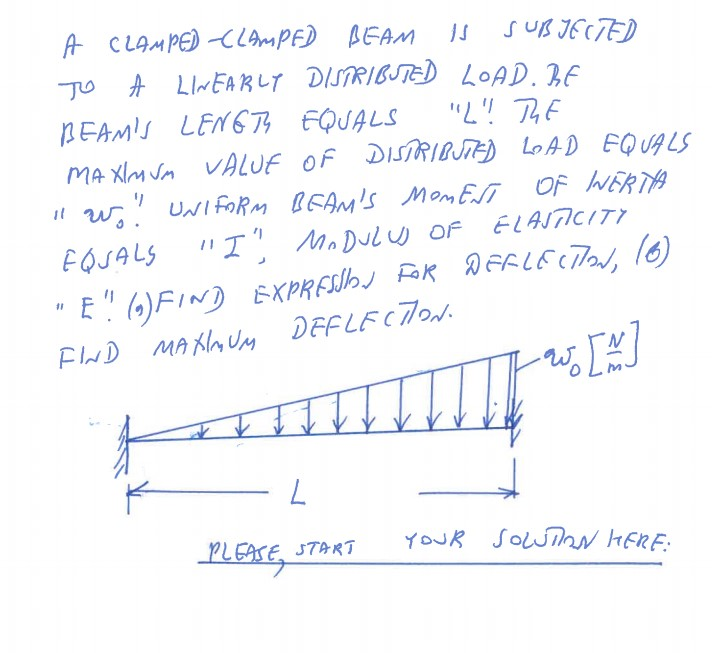 A CLAMPED-CLAMPED BEAM IS SUBJECTED
TO A LINEARLY DISTRIBUTED LOAD. THE
BEAM'S LENGTH EQUALS "L". THE
MAXIMUM VALUE OF DISTRIBUTED LOAD EQUALS
"w₀". UNIFORM BEAM'S MOMENT OF INERTIA
EQUALS "I", MODULUS OF ELASTICITY
"E". (a) FIND EXPRESSION FOR DEFLECTION, (b)
FIND MAXIMUM DEFLECTION.
w₀ [N/m]
L
PLEASE, START YOUR SOLUTION HERE: